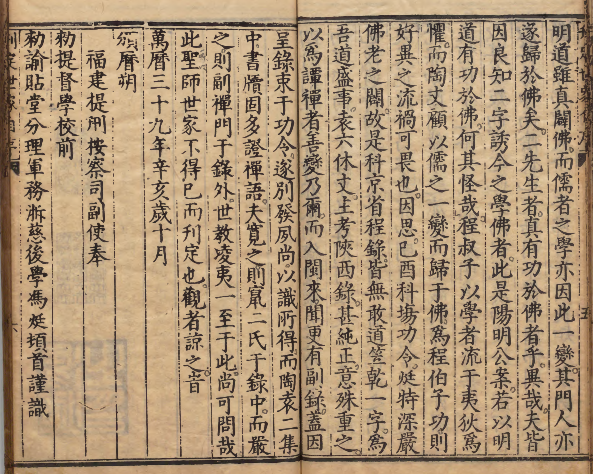 明道雖真闢佛而儒者之學亦因此一變其門人亦
遂歸於佛矣二先生者真有功於佛者乎異哉夫皆
因良知二字誘今之學佛者此是陽明公案若以明
道有功於佛何其怪哉程叔子以學者流于夷狄為
懼而陶丈顧以儒之一變而歸于佛為程伯子功則
好異之流禍可畏也因思己酉科場功令烶特深嚴
佛老之闢故是科京省程錄皆無敢道竺乾一字為
吾道盛事袁六休丈上考陝西錄甚純正意殊重之
以為讀禪者善變乃爾而入閩來聞更有副錄蓋因
呈錄束于功令遂別發夙尚以識所得而陶袁二集
中書牘固多證禪語夫寬之則竄二氏于錄中而嚴
之則副禪門于錄外世教凌夷一至于此尚可問哉
此聖師世家不得已而刊定也觀者諒之旹
萬曆三十九年辛亥歲十月
頒曆朔
福建提刑按察司副使奉
勑提督學校前
勑諭貼堂分理軍務浙慈後學馮烶頓首謹識